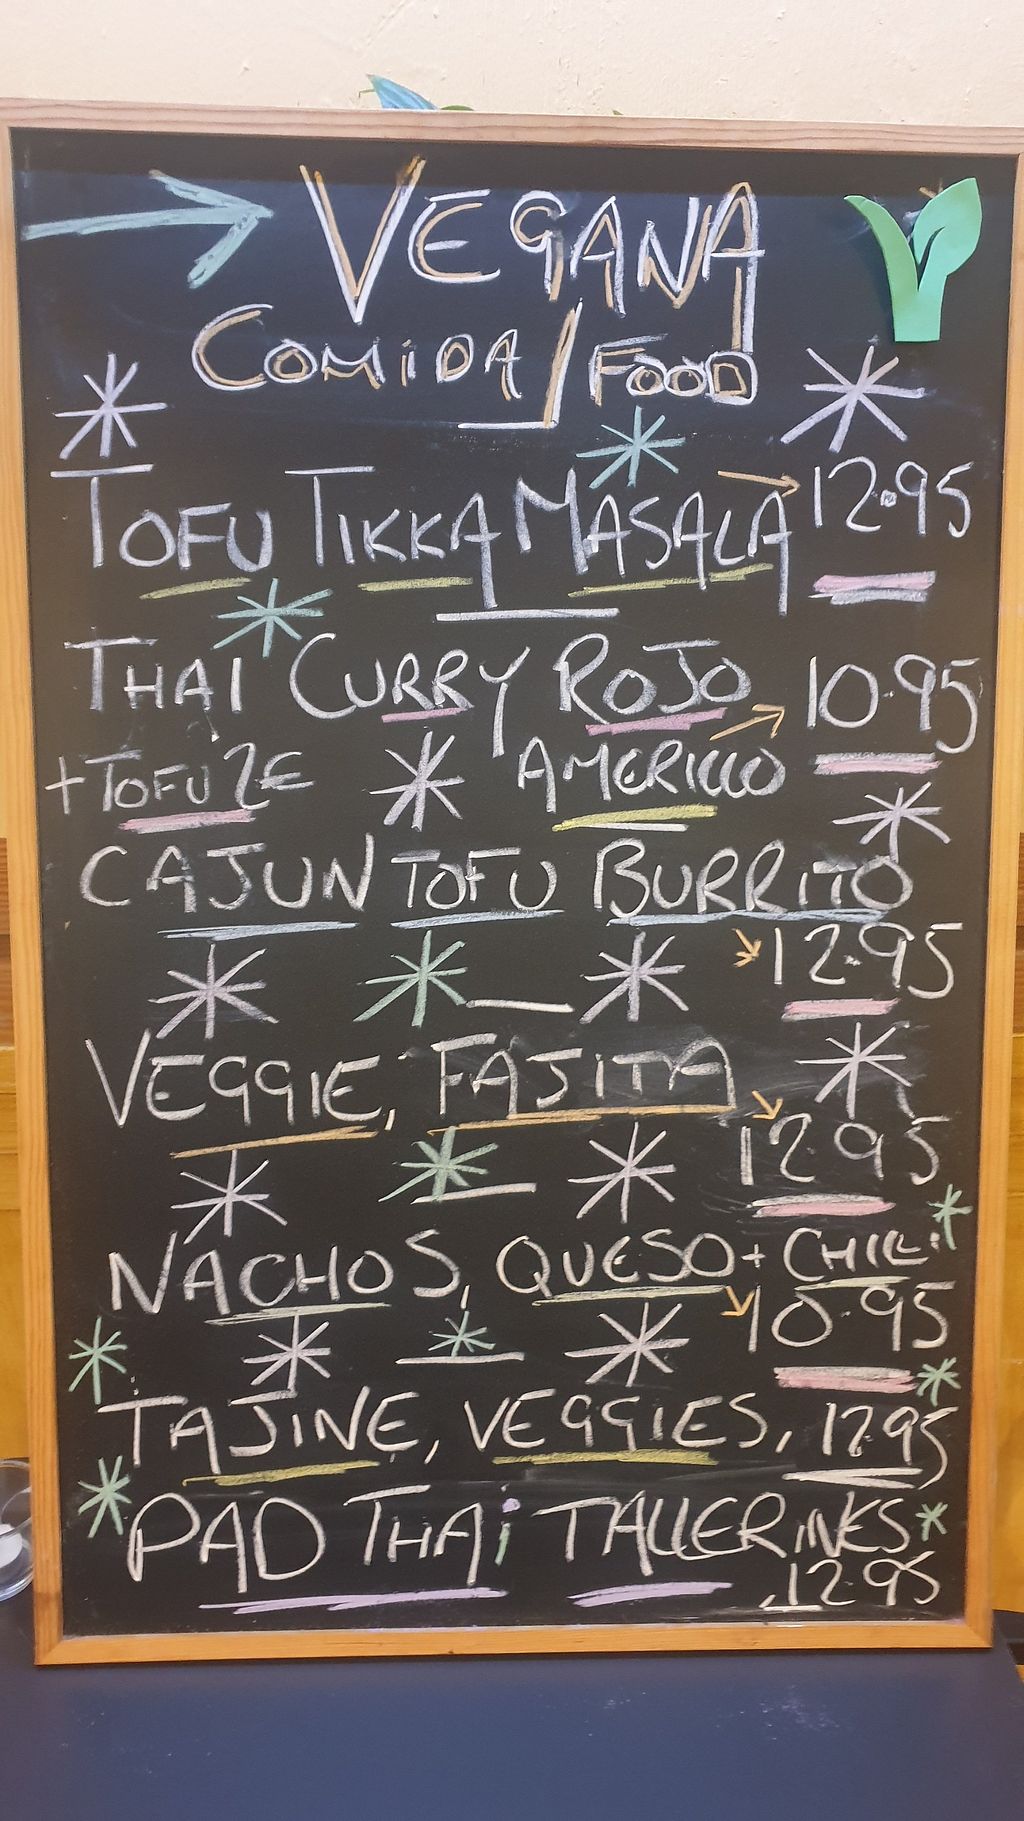 VEGANA
COMIDA / FOOD
TOFU TIKKA MASALA 12.95
THAI CURRY ROJO 10.95
+ TOFU 2E
CAJUN TOFU BURRITO
12.95
VEGGIE, FAJITA
12.95
NACHOS, QUESO + CHILI
10.95
TAJINE, VEGGIES, 12.95
PAD THAi TALLERINES
12.95